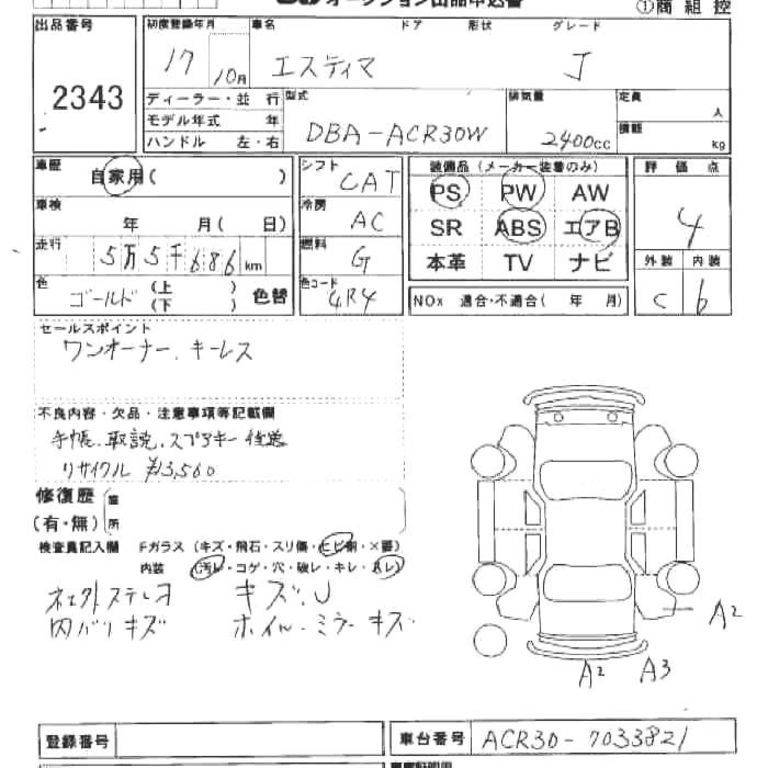 オークション出品申込書
①商 組 控
出品番号 初度登録年月 車名 ドア 形状 グレード
2343
17 10月 エスティマ J
ディーラー・並 行 型式 排気量 定員
モデル年式 年 DBA-ACR30W 2400cc 人
ハンドル 左・右 積載 kg
車歴 シフト 装備品(メーカー装着のみ) 評 価 点
自家用( ) CAT PS PW AW 4
車検 冷房
年 月( 日) AC SR ABS エアB
走行 燃料 外装 内装
5万5千686km G 本革 TV ナビ
色 色コード C b
ゴールド(上)(下) 色替 4R4 NOx 適合・不適合( 年 月)
セールスポイント
ワンオーナー、キーレス
不良内容・欠品・注意事項等記載欄
手帳、取説、スペアキー 後送
リサイクル ¥13,560
修復歴 箇
(有・無) 所
検査員記入欄 Fガラス(キズ・飛石・スリ傷・ヒビ割・×要)
内装 (汚レ・コゲ・穴・破レ・キレ・スレ)
ステレオ キズ、U
内バリキズ ホイル・ミラーキズ
A2
A2 A3
登録番号 車台番号 ACR30-7033821